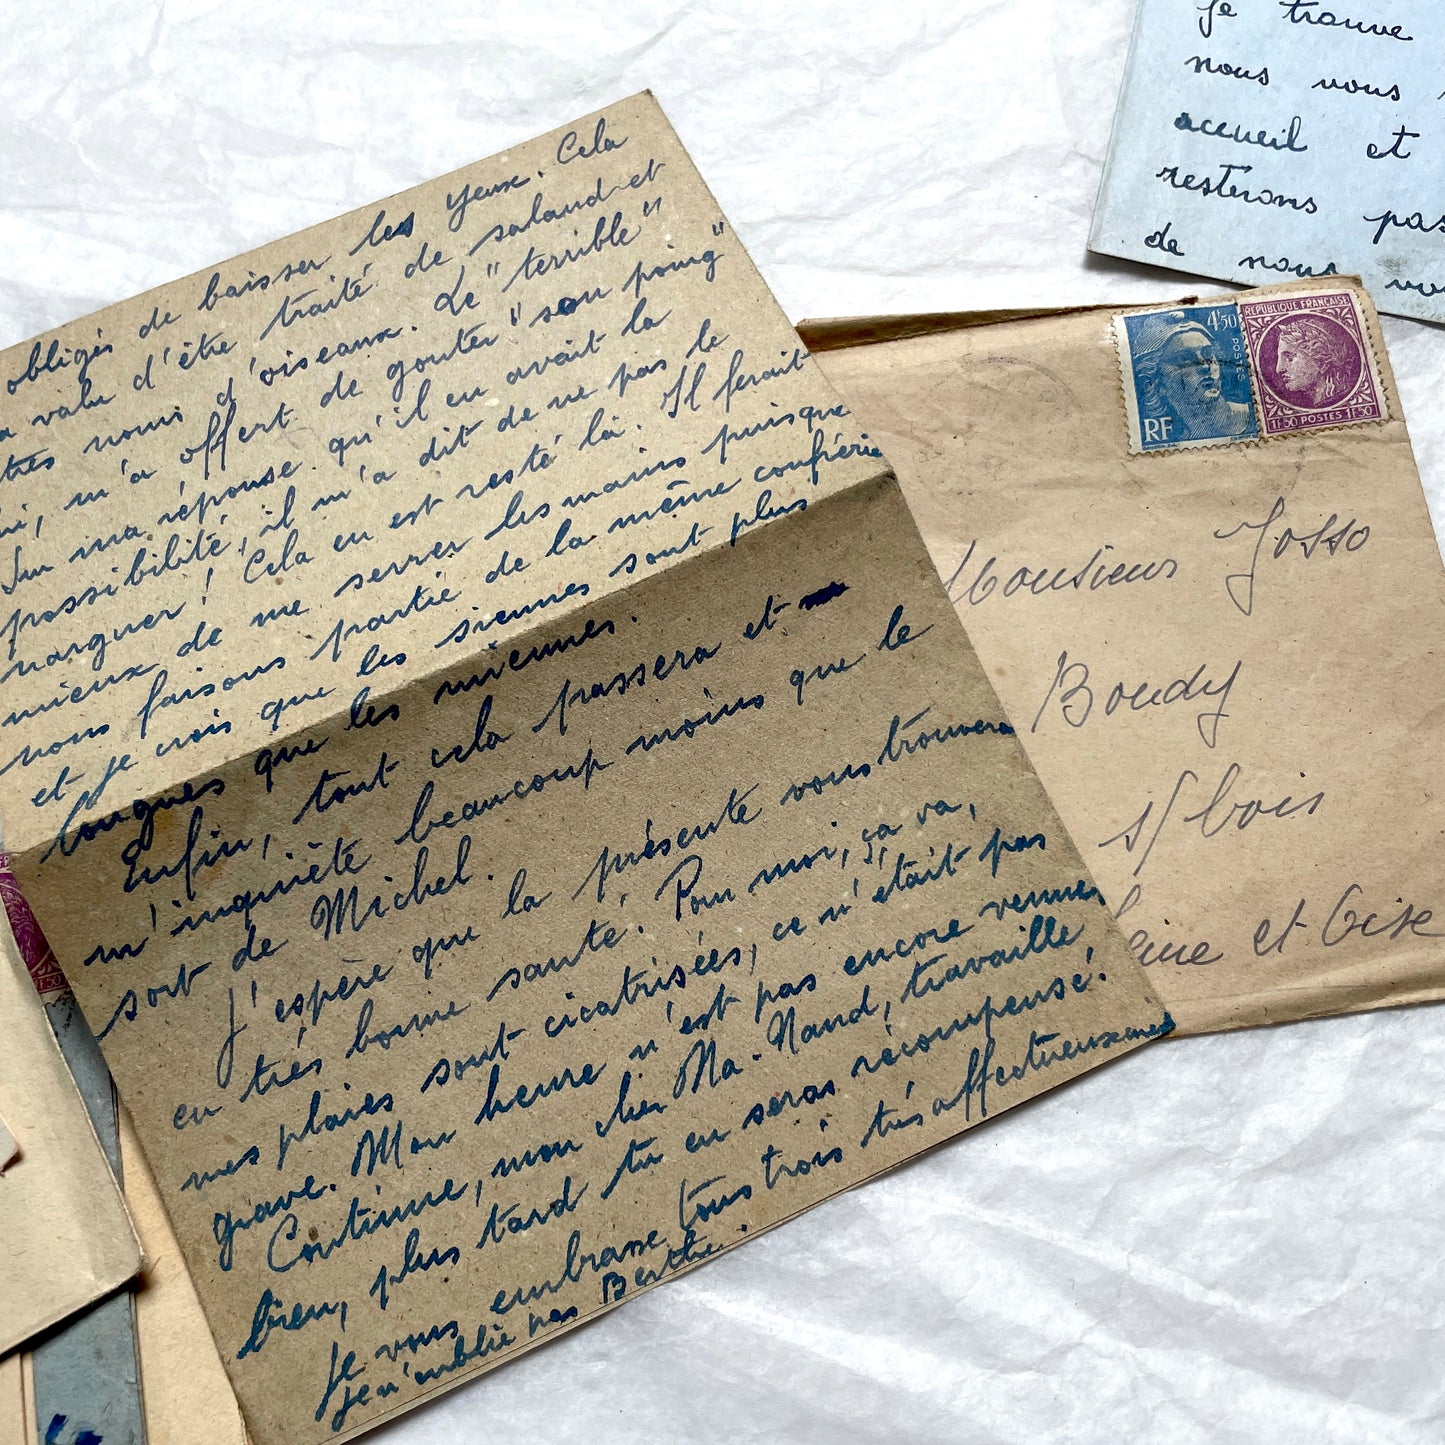 obligés de baisser les yeux. Cela
a valu d'être traité de saland et
tres noms d'oiseaux. Le "terrible"
i, m'a offert de gouter "son poing"
Sur ma réponse qu'il en avait la
possibilité, il m'a dit de ne pas le
narguer! Cela en est resté là. Il ferait
mieux de me serrer les mains puisque
nous faisons partie de la même confrérie
et je crois que les siennes sont plus
longues que les miennes.
Enfin, tout cela passera et
m'inquiète beaucoup moins que le
sort de Michel.
J'espère que la présente vous trouvera
en très bonne santé. Pour moi, ça va,
mes plaies sont cicatrisées, ce n'était pas
grave. Mon heure n'est pas encore venue,
Continue, mon cher Ma-Nand, travaille
bien, plus tard tu en seras récompensé!
Je vous embrasse tous trois très affectueusement
Je n'oublie pas Berthe.
je trouve
nous vous
accueil et
resterons pas
de nous vou
4f50
POSTES
RF
REPUBLIQUE FRANÇAISE
1f.50 POSTES 1f.50
Monsieur Josso
Bondy
s/ bois
Seine et Oise
1f.50